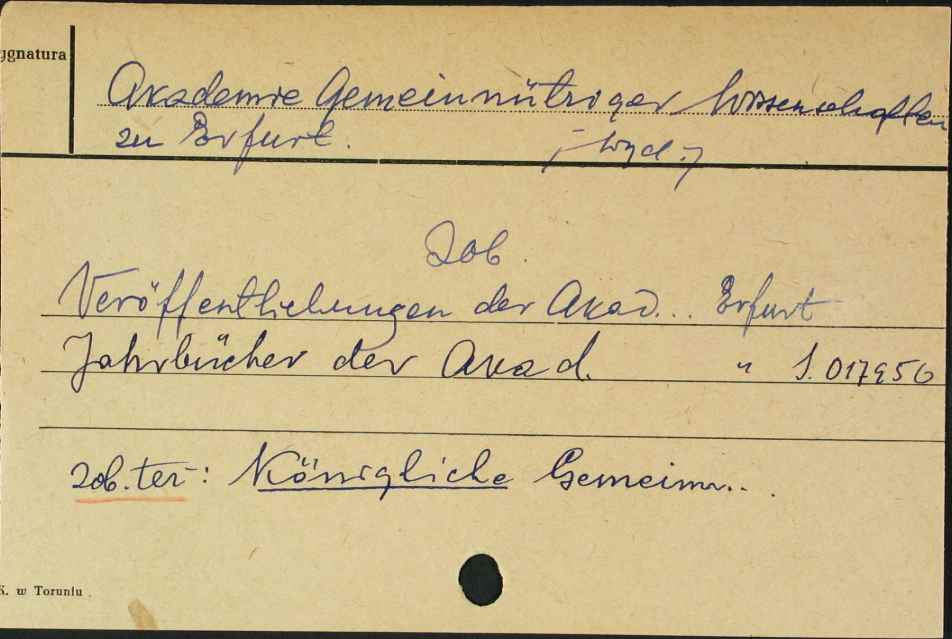 ygnatura
Akademie Gemeinnütziger Wissenschaften
zu Erfurt. /-wyd.-/
Zob.
Veröffentlichungen der Akad... Erfurt
Jahrbücher der Akad. " S. 017950
zob. też: Königliche Gemeinn...
K. w Toruniu